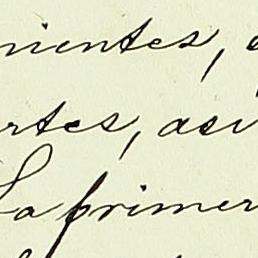 nientes,
rtes, asi
La primer